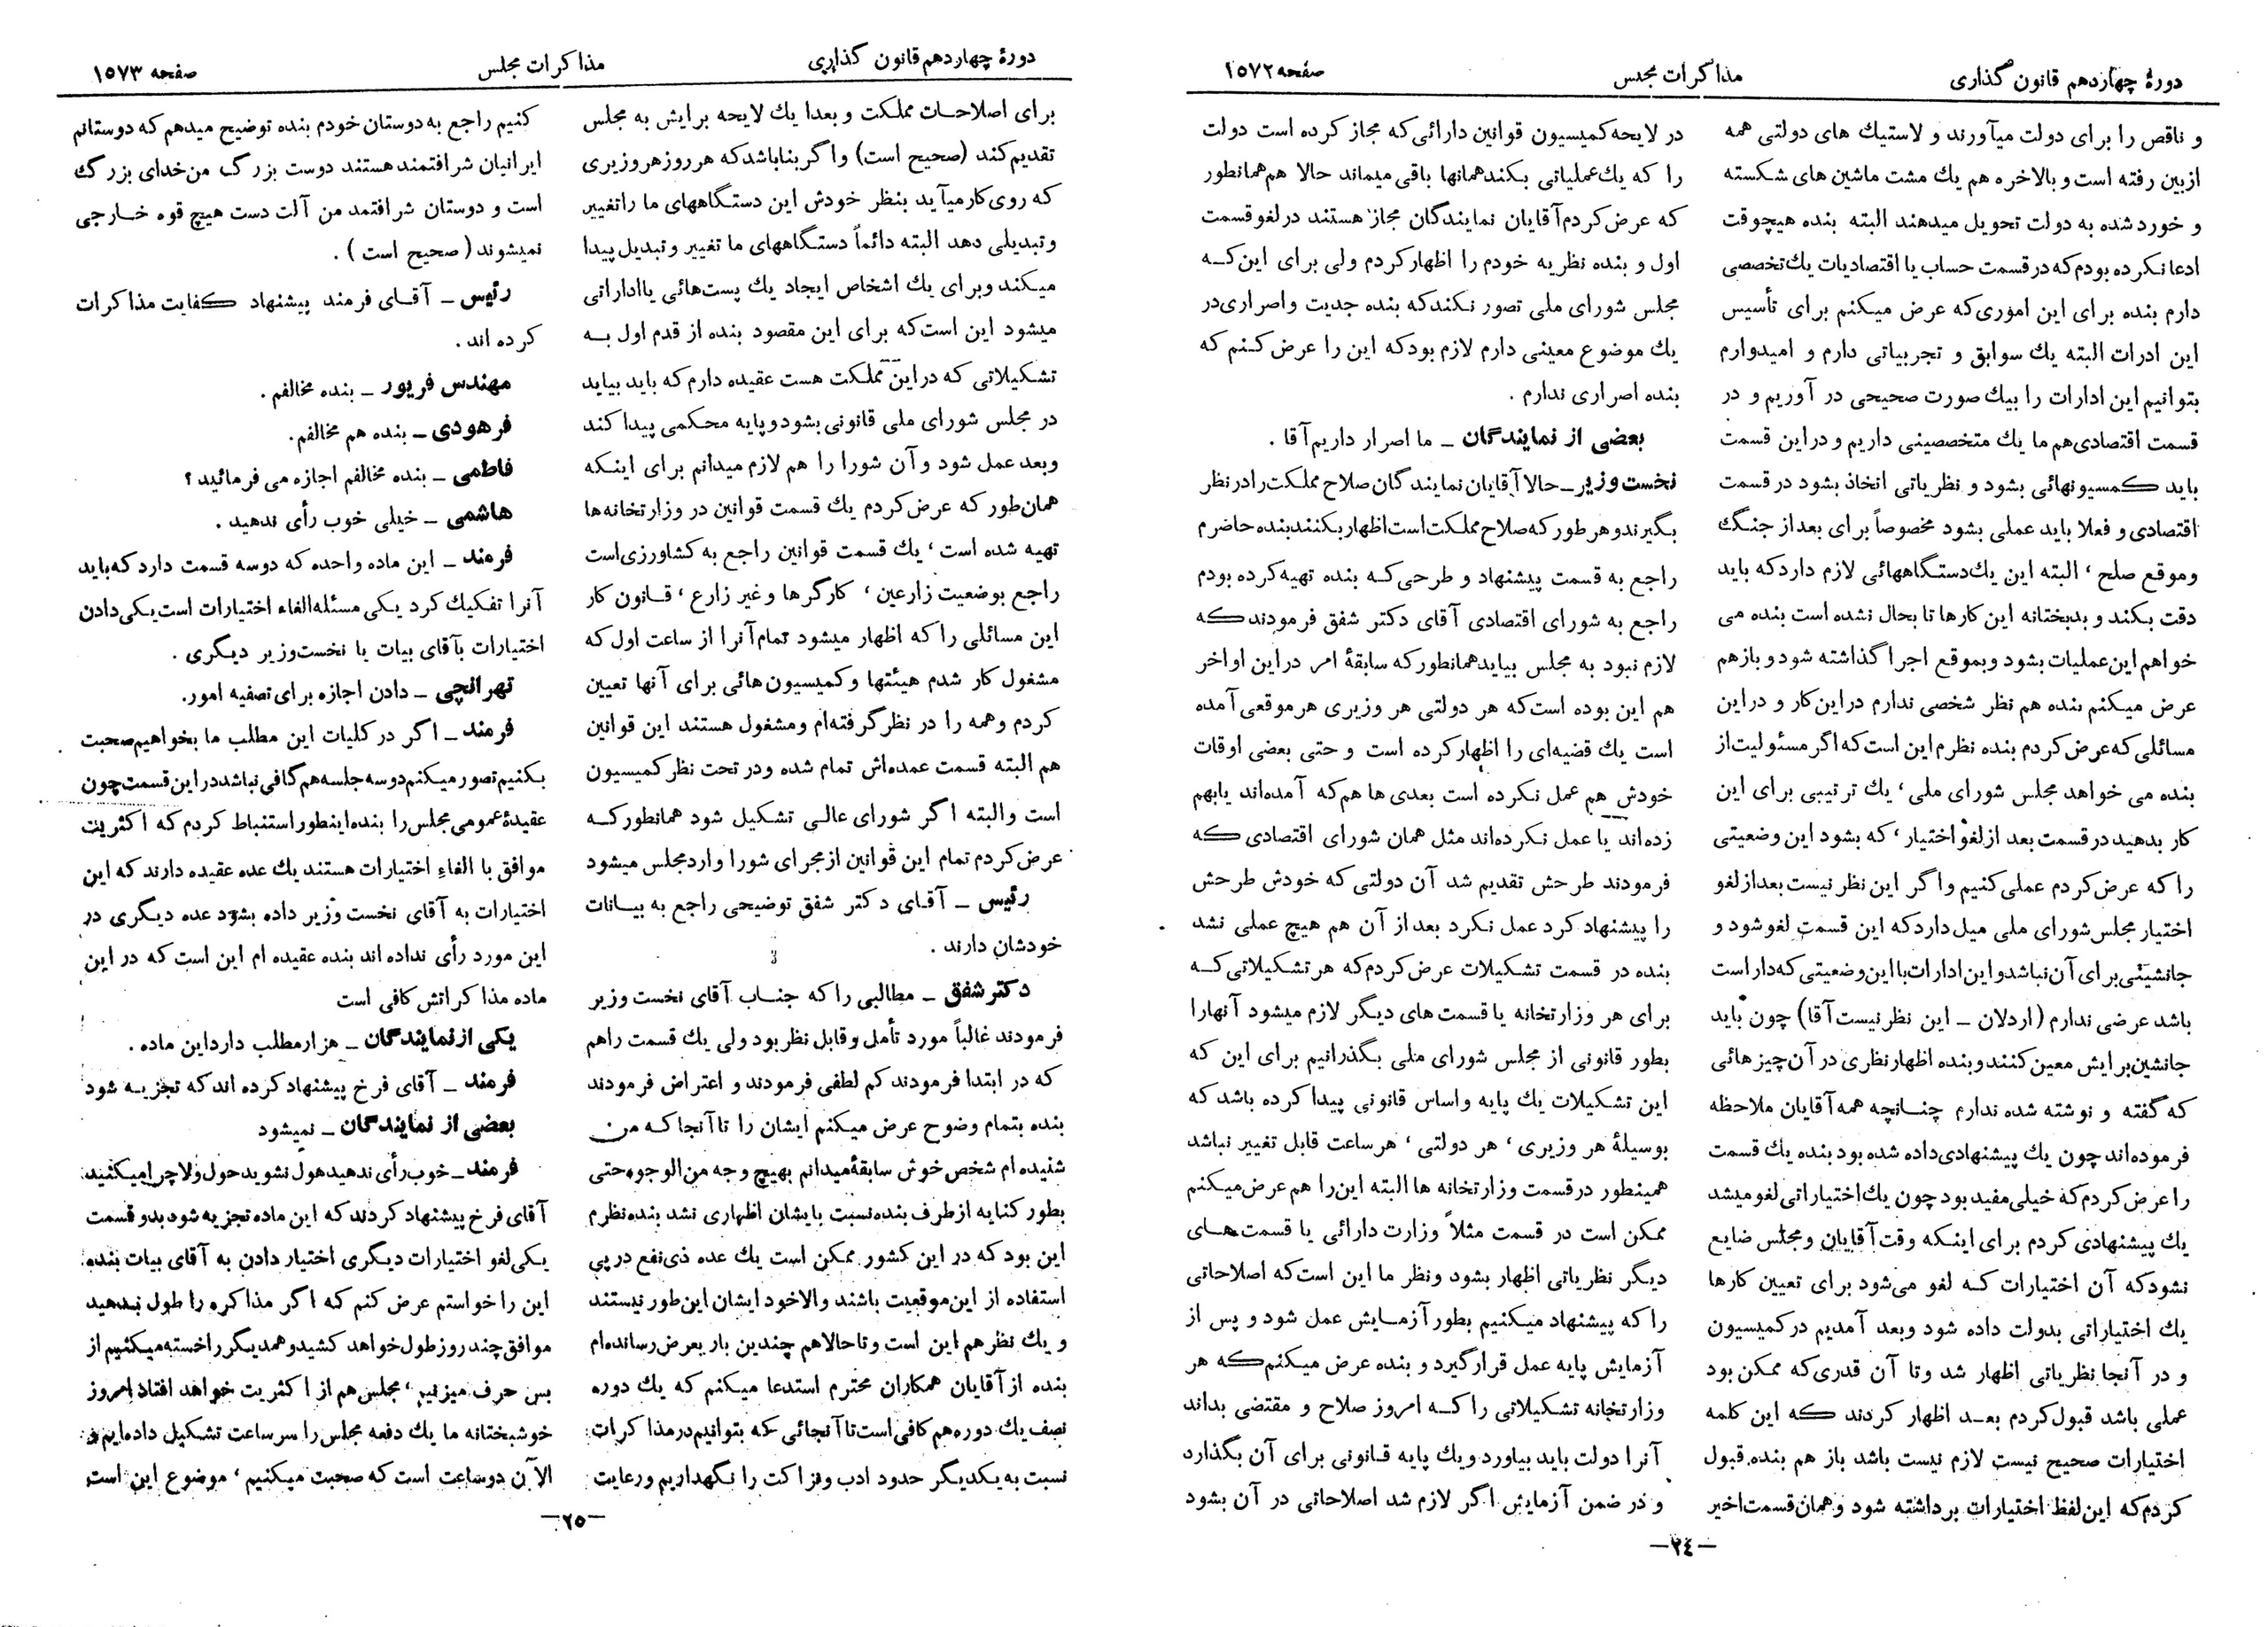 دورهٔ چهاردهم قانون گذاری
مذاکرات مجلس
صفحه ۱۵۷۲
و ناقص را برای دولت میآورند و لاستیک های دولتی همه
ازبین رفته است و بالاخره هم یك مشت ماشین های شکسته
و خورد شده به دولت تحویل میدهند البته بنده هیچوقت
ادعا نکرده بودم که در قسمت حساب یا اقتصادیات یك تخصصی
دارم بنده برای این اموری که عرض میکنم برای تأسیس
این ادرات البته یك سوابق و تجربیاتی دارم و امیدوارم
بتوانیم این ادارات را بیك صورت صحیحی در آوریم و در
قسمت اقتصادی هم ما یك متخصصینی داریم و در این قسمت
باید کمسیونهائی بشود و نظریاتی اتخاذ بشود در قسمت
اقتصادی و فعلا باید عملی بشود مخصوصاً برای بعد از جنگ
وموقع صلح ، البته این یك دستگاههائی لازم دارد که باید
دقت بکند و بدبختانه این کارها تا بحال نشده است بنده می
خواهم این عملیات بشود و بموقع اجرا گذاشته شود و باز هم
عرض میکنم بنده هم نظر شخصی ندارم در این کار و در این
مسائلی که عرض کردم بنده نظرم این است که اگر مسئولیت از
بنده می خواهد مجلس شورای ملی ، یك ترتیبی برای این
کار بدهید در قسمت بعد از لغو اختیار ، که بشود این وضعیتی
را که عرض کردم عملی کنیم و اگر این نظر نیست بعد از لغو
اختیار مجلس شورای ملی میل دارد که این قسمت لغو شود و
جانشینی برای آن نباشد و این ادارات با این وضعیتی که دار است
باشد عرضی ندارم (اردلان ـ این نظر نیست آقا) چون باید
جانشین برایش معین کنند و بنده اظهار نظری در آن چیز هائی
که گفته و نوشته شده ندارم چنانچه همه آقایان ملاحظه
فرموده‌اند چون یك پیشنهادی داده شده بود بنده یك قسمت
را عرض کردم که خیلی مفید بود چون یك اختیاراتی لغو میشد
یك پیشنهادی کردم برای اینکه وقت آقایان و مجلس ضایع
نشود که آن اختیارات که لغو می‌شود برای تعیین کارها
یك اختیاراتی بدولت داده شود وبعد آمدیم در کمیسیون
و در آنجا نظریاتی اظهار شد وتا آن قدری که ممکن بود
عملی باشد قبول کردم بعد اظهار کردند که این کلمه
اختیارات صحیح نیست لازم نیست باشد باز هم بنده قبول
کردم که این لفظ اختیارات برداشته شود و همان قسمت اخیر
در لایحه کمیسیون قوانین دارائی که مجاز کرده است دولت
را که یك عملیاتی بکند همانها باقی میماند حالا هم همانطور
که عرض کردم آقایان نمایندگان مجاز هستند در لغو قسمت
اول و بنده نظریه خودم را اظهار کردم ولی برای این که
مجلس شورای ملی تصور نکند که بنده جدیت واصراری در
یك موضوع معینی دارم لازم بود که این را عرض کنم که
بنده اصراری ندارم .
بعضی از نمایندگان ـ ما اصرار داریم آقا .
نخست وزیر ـ حالا آقایان نمایندگان صلاح مملکت را در نظر
بگیرند و هر طور که صلاح مملکت است اظهار بکنند بنده حاضرم
راجع به قسمت پیشنهاد و طرحی که بنده تهیه کرده بودم
راجع به شورای اقتصادی آقای دکتر شفق فرمودند که
لازم نبود به مجلس بیاید همانطور که سابقهٔ امر در این اواخر
هم این بوده است که هر دولتی هر وزیری هر موقعی آمده
است یك قضیه‌ای را اظهار کرده است و حتی بعضی اوقات
خودش هم عمل نکرده است بعدی ها هم که آمده‌اند یا بهم
زده‌اند یا عمل نکرده‌اند مثل همان شورای اقتصادی که
فرمودند طرحش تقدیم شد آن دولتی که خودش طرحش
را پیشنهاد کرد عمل نکرد بعد از آن هم هیچ عملی نشد
بنده در قسمت تشکیلات عرض کردم که هر تشکیلاتی که
برای هر وزارتخانه یا قسمت های دیگر لازم میشود آنها را
بطور قانونی از مجلس شورای ملی بگذرانیم برای این که
این تشکیلات یك پایه واساس قانونی پیدا کرده باشد که
بوسیلهٔ هر وزیری ، هر دولتی ، هر ساعت قابل تغییر نباشد
همینطور در قسمت وزارتخانه ها البته این را هم عرض میکنم
ممکن است در قسمت مثلاً وزارت دارائی یا قسمت های
دیگر نظریاتی اظهار بشود ونظر ما این است که اصلاحاتی
را که پیشنهاد میکنیم بطور آزمایش عمل شود و پس از
آزمایش پایه عمل قرار گیرد و بنده عرض میکنم که هر
وزارتخانه تشکیلاتی را که امروز صلاح و مقتضی بداند
آنرا دولت باید بیاورد ویك پایه قانونی برای آن بگذارد
و در ضمن آزمایش اگر لازم شد اصلاحاتی در آن بشود
ـ۲٤ـ
دورهٔ چهاردهم قانون گذاری
مذاکرات مجلس
صفحه ۱۵۷۳
برای اصلاحات مملکت و بعدا یك لایحه برایش به مجلس
تقدیم کند (صحیح است) واگر بنا باشد که هر روز هر وزیری
که روی کار میآید بنظر خودش این دستگاههای ما را تغییر
وتبدیلی دهد البته دائماً دستگاههای ما تغییر وتبدیل پیدا
میکند وبرای یك اشخاص ایجاد یك پست‌هائی یا اداراتی
میشود این است که برای این مقصود بنده از قدم اول به
تشکیلاتی که در این مملکت هست عقیده دارم که باید بیاید
در مجلس شورای ملی قانونی بشود و پایه محکمی پیدا کند
وبعد عمل شود و آن شورا را هم لازم میدانم برای اینکه
همان‌طور که عرض کردم یك قسمت قوانین در وزارتخانه‌ها
تهیه شده است ، یك قسمت قوانین راجع به کشاورزی است
راجع بوضعیت زارعین ، کارگرها وغیر زارع ، قانون کار
این مسائلی را که اظهار میشود تمام آنرا از ساعت اول که
مشغول کار شدم هیئتها وکمیسیون هائی برای آنها تعیین
کردم وهمه را در نظر گرفته‌ام ومشغول هستند این قوانین
هم البته قسمت عمده‌اش تمام شده ودر تحت نظر کمیسیون
است والبته اگر شورای عالی تشکیل شود همانطور که
عرض کردم تمام این قوانین از مجرای شورا وارد مجلس میشود
رئیس ـ آقای دکتر شفق توضیحی راجع به بیانات
خودشان دارند .
دکتر شفق ـ مطالبی را که جناب آقای نخست وزیر
فرمودند غالباً مورد تأمل وقابل نظر بود ولی یك قسمت راهم
که در ابتدا فرمودند کم لطفی فرمودند و اعتراض فرمودند
بنده بتمام وضوح عرض میکنم ایشان را تا آنجا که من
شنیده ام شخص خوش سابقهٔ میدانم بهیچ وجه من الوجوه حتی
بطور کنایه از طرف بنده نسبت بایشان اظهاری نشد بنده نظرم
این بود که در این کشور ممکن است یك عده ذی‌نفع در پی
استفاده از این موقعیت باشند والا خود ایشان این طور نیستند
و یك نظر هم این است و تا حالا هم چندین بار بعرض رسانده‌ام
بنده از آقایان همکاران محترم استدعا میکنم که یك دوره
نصف یك دوره هم کافی است تا آنجائی که بتوانیم در مذاکرات
نسبت به یکدیگر حدود ادب ونزاکت را نگهداریم ورعایت
کنیم راجع به دوستان خودم بنده توضیح میدهم که دوستانم
ایرانیان شرافتمند هستند دوست بزرگ من خدای بزرگ
است و دوستان شرافتمد من آلت دست هیچ قوه خارجی
نمیشوند ( صحیح است ) .
رئیس ـ آقای فرمند پیشنهاد کفایت مذاکرات
کرده اند .
مهندس فریور ـ بنده مخالفم .
فرهودی ـ بنده هم مخالفم.
فاطمی ـ بنده مخالفم اجازه می فرمائید ؟
هاشمی ـ خیلی خوب رأی ندهید .
فرمند ـ این ماده واحده که دوسه قسمت دارد که باید
آنرا تفکیك کرد یکی مسئله الغاء اختیارات است یکی دادن
اختیارات بآقای بیات یا نخست وزیر دیگری .
تهرانچی ـ دادن اجازه برای تصفیه امور.
فرمند ـ اگر در کلیات این مطلب ما بخواهیم صحبت
بکنیم تصور میکنم دوسه جلسه هم کافی نباشد در این قسمت چون
عقیدهٔ عمومی مجلس را بنده اینطور استنباط کردم که اکثریت
موافق با الغاء اختیارات هستند یك عده عقیده دارند که این
اختیارات به آقای نخست وزیر داده بشود عده دیگری در
این مورد رأی نداده اند بنده عقیده ام این است که در این
ماده مذاکراتش کافی است
یکی از نمایندگان ـ هزار مطلب دارد این ماده .
فرمند ـ آقای فرخ پیشنهاد کرده اند که تجزیه شود
بعضی از نمایندگان ـ نمیشود
فرمند ـ خوب رأی ندهید هول نشوید حول ولا چرا میکنید
آقای فرخ پیشنهاد کردند که این ماده تجزیه شود بدو قسمت
یکی لغو اختیارات دیگری اختیار دادن به آقای بیات بنده
این را خواستم عرض کنم که اگر مذاکره را طول بدهید
موافق چند روز طول خواهد کشید و همدیگر را خسته میکنیم از
بس حرف میزنیم ، مجلس هم از اکثریت خواهد افتاد امروز
خوشبختانه ما یك دفعه مجلس را سر ساعت تشکیل داده‌ایم و
الآن دوساعت است که صحبت میکنیم ، موضوع این است
ـ۲۵ـ